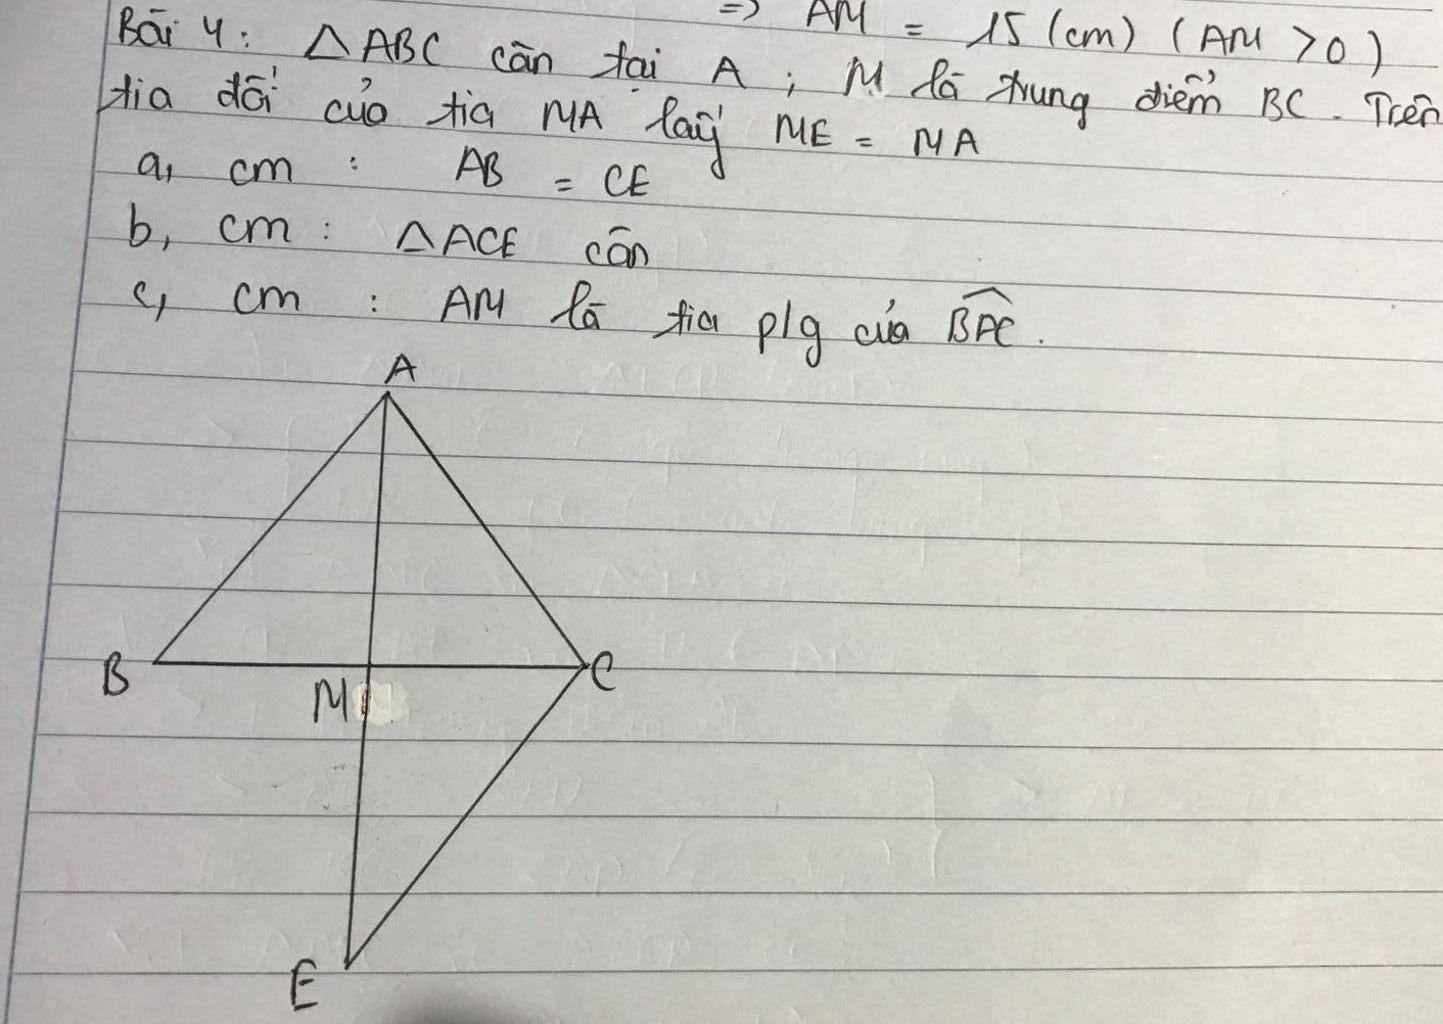 => AM = 15 (cm) (AM > 0)
Bài 4: △ABC cân tại A ; M là trung điểm BC. Trên
tia đối của tia MA lấy ME = MA
a, cm : AB = CE
b, cm : △ACE cân
c, cm : AM là tia p/g của \widehat{BAC}.
A
B
C
M
E